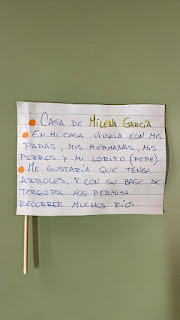 CASA DE MILENA GARCÍA
EN MI CASA VIVIRIA CON MIS
PAPAS, MIS HERMANAS, MIS
PERROS Y MI LORITO (PEPE).
ME GUSTARÍA QUE TENGA
ARBOLES, Y CON SU BASE DE
TERGOPOL NOS PERMITA
RECORRER MUCHOS RÍOS.